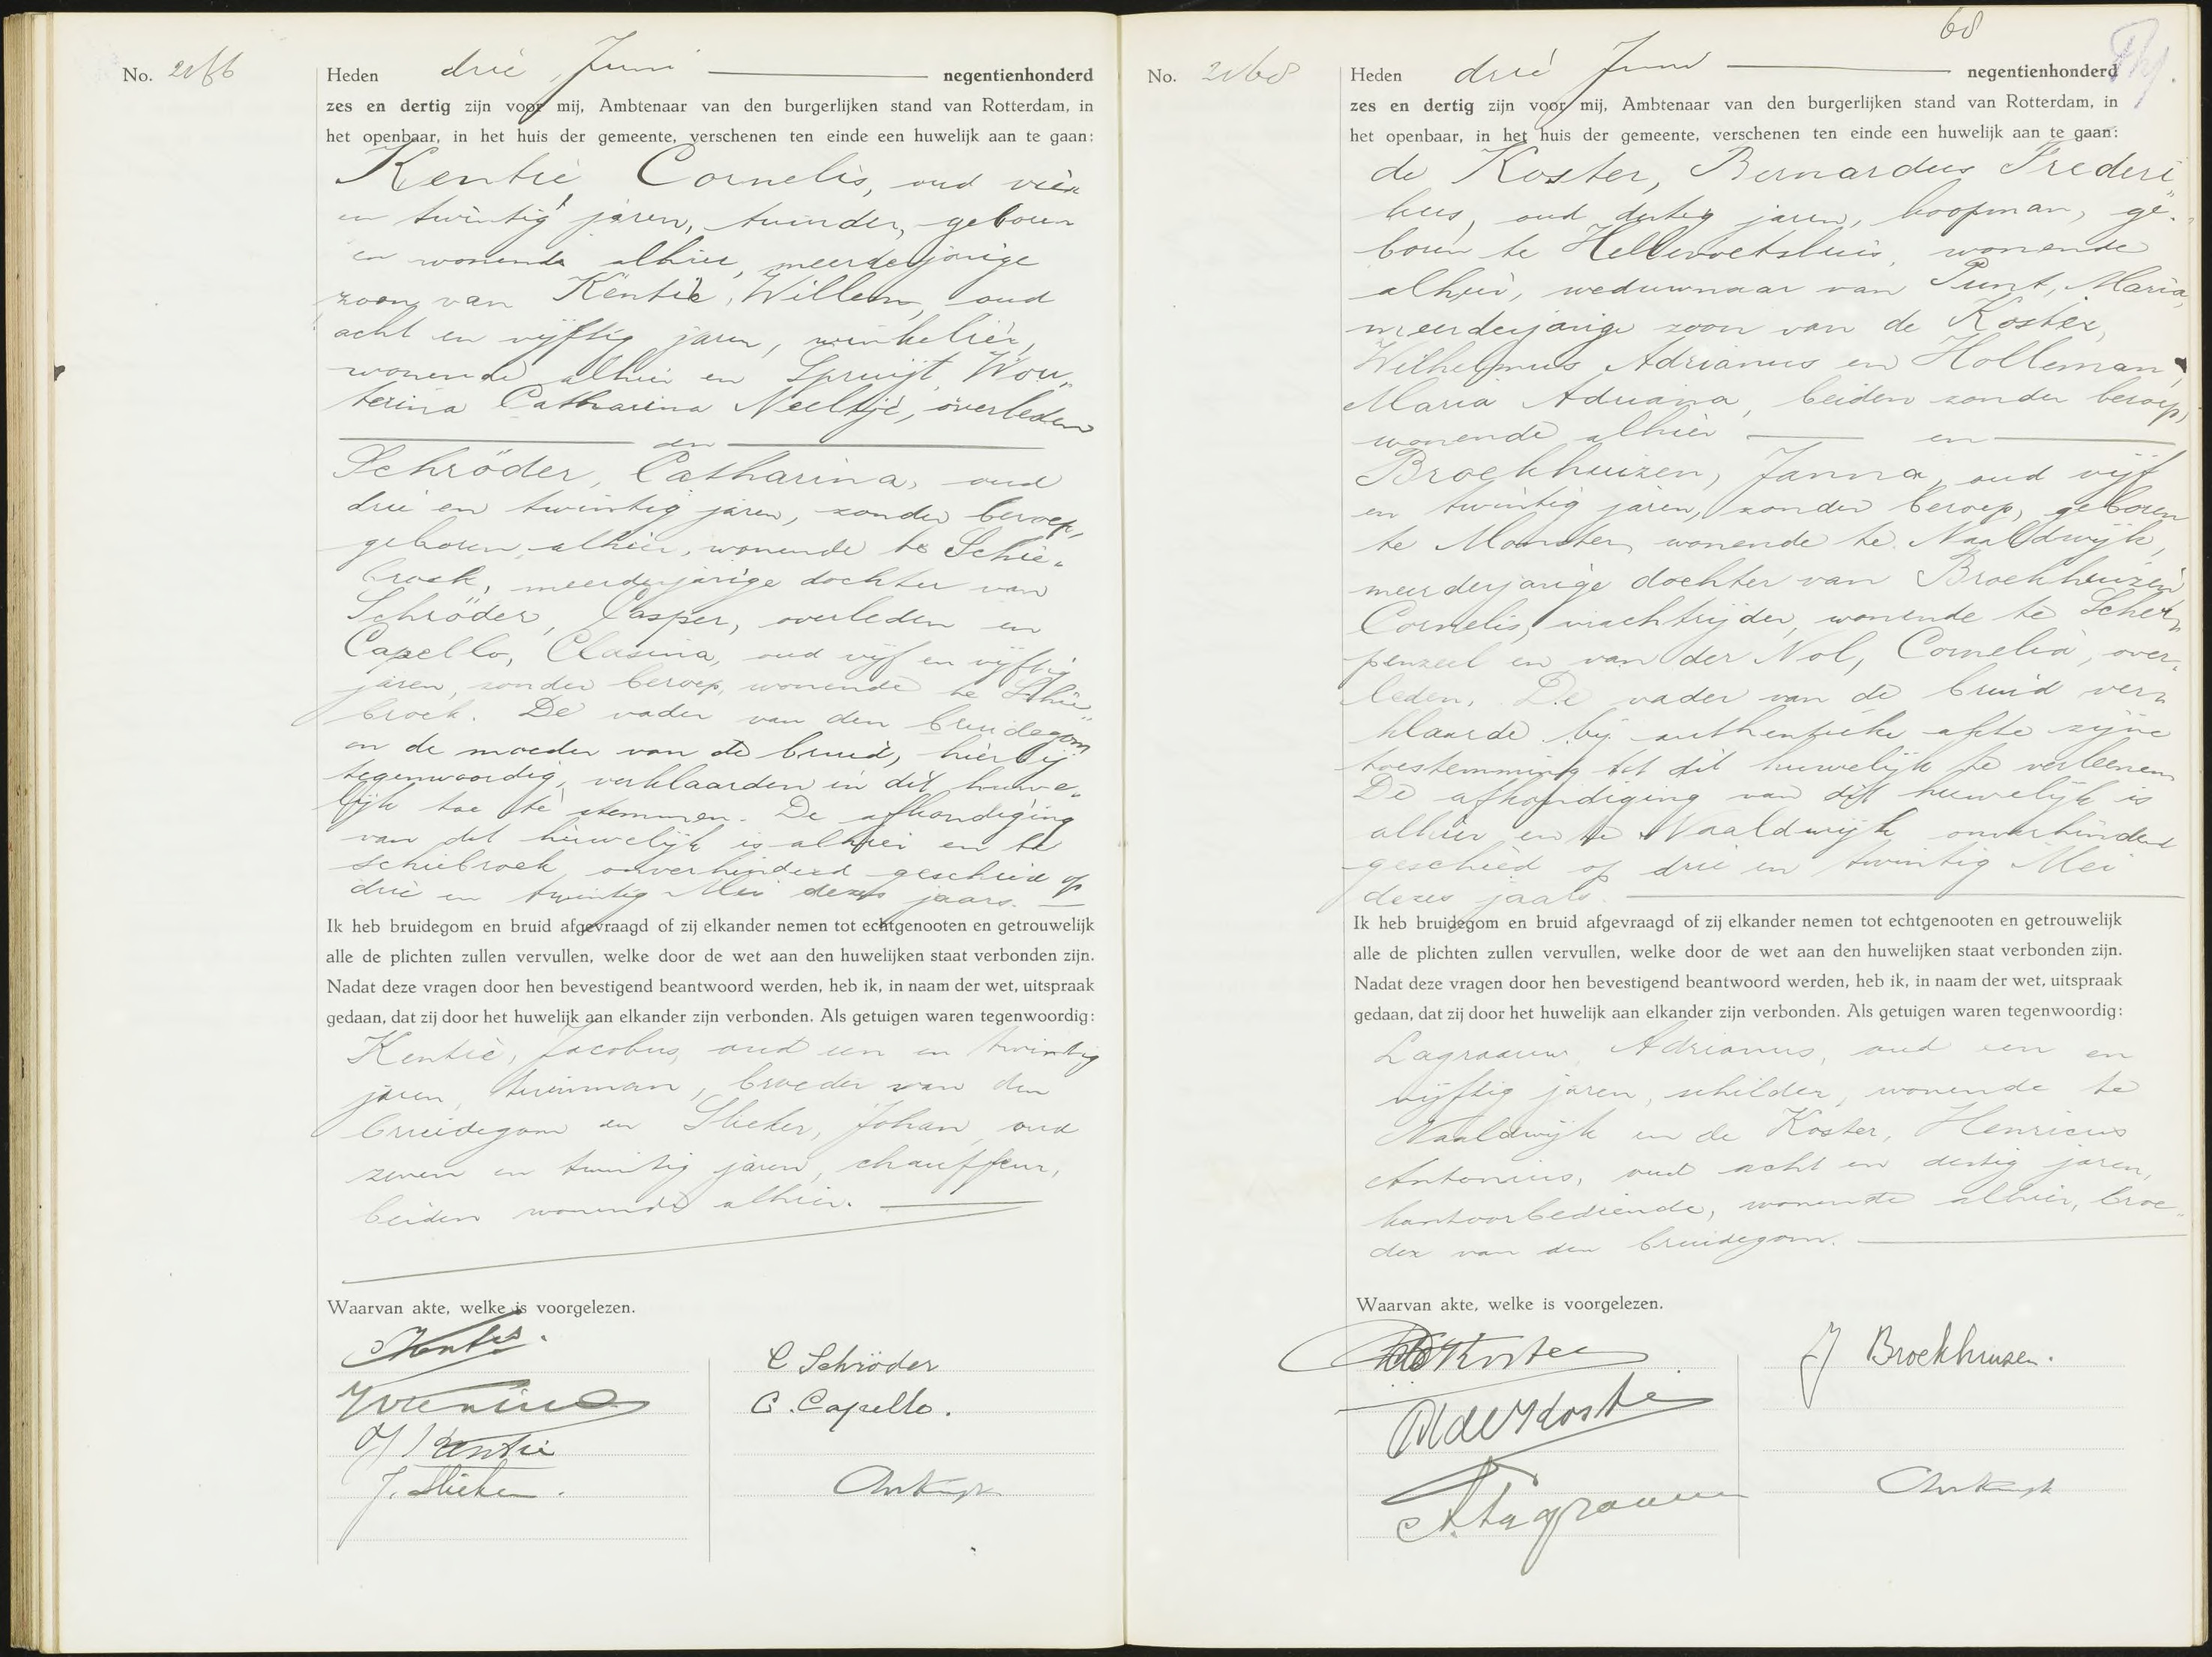 No. 2166
Heden drie Juni negentienhonderd
zes en dertig zijn voor mij, Ambtenaar van den burgerlijken stand van Rotterdam, in
het openbaar, in het huis der gemeente, verschenen ten einde een huwelijk aan te gaan:
Kentie, Cornelis, oud vier
en twintig jaren, tuinder, geboren
en wonende alhier, meerderjarige
zoon van Kentie, Willem, oud
acht en vijftig jaren, winkelier,
wonende alhier en Spruijt, Wou„
terina Catharina Neeltje, overleden
en
Schröder, Catharina, oud
drie en twintig jaren, zonder beroep,
geboren alhier, wonende te Schie„
broek, meerderjarige dochter van
Schröder, Casper, overleden en
Capello, Clasina, oud vijf en vijftig
jaren, zonder beroep, wonende te Schie„
broek. De vader van den bruidegom
en de moeder van de bruid, hierbij
tegenwoordig, verklaarden in dit huwe„
lijk toe te stemmen. De afkondiging
van dit huwelijk is alhier en te
Schiebroek onverhinderd geschied op
drie en twintig Mei dezes jaars.
Ik heb bruidegom en bruid afgevraagd of zij elkander nemen tot echtgenooten en getrouwelijk
alle de plichten zullen vervullen, welke door de wet aan den huwelijken staat verbonden zijn.
Nadat deze vragen door hen bevestigend beantwoord werden, heb ik, in naam der wet, uitspraak
gedaan, dat zij door het huwelijk aan elkander zijn verbonden. Als getuigen waren tegenwoordig:
Kentie, Jacobus, oud een en twintig
jaren, tuinman, broeder van den
bruidegom en Slieker, Johan, oud
zeven en twintig jaren, chauffeur,
beiden wonende alhier.
Waarvan akte, welke is voorgelezen.
C Kentie.
C Schröder
C. Capello.
J Kentie
J. Slieker.
68
No. 2168
Heden drie Juni negentienhonderd
zes en dertig zijn voor mij, Ambtenaar van den burgerlijken stand van Rotterdam, in
het openbaar, in het huis der gemeente, verschenen ten einde een huwelijk aan te gaan:
de Koster, Bernardus Frederi„
kus, oud dertig jaren, koopman, ge„
boren te Hellevoetsluis, wonende
alhier, weduwnaar van Punt, Maria,
meerderjarige zoon van de Koster,
Wilhelmus Adrianus en Holleman,
Maria Adriana, beiden zonder beroep,
wonende alhier en
Broekhuizen, Janna, oud vijf
en twintig jaren, zonder beroep, geboren
te Monster, wonende te Naaldwijk,
meerderjarige dochter van Broekhuizen,
Cornelis, vrachtrijder, wonende te Scher„
penzeel en van der Nol, Cornelia, over„
leden. De vader van de bruid ver„
klaarde bij authentieke akte zijne
toestemming tot dit huwelijk te verleenen.
De afkondiging van dit huwelijk is
alhier en te Naaldwijk onverhinderd
geschied op drie en twintig Mei
dezes jaars.
Ik heb bruidegom en bruid afgevraagd of zij elkander nemen tot echtgenooten en getrouwelijk
alle de plichten zullen vervullen, welke door de wet aan den huwelijken staat verbonden zijn.
Nadat deze vragen door hen bevestigend beantwoord werden, heb ik, in naam der wet, uitspraak
gedaan, dat zij door het huwelijk aan elkander zijn verbonden. Als getuigen waren tegenwoordig:
Lagraauw, Adrianus, oud een en
vijftig jaren, schilder, wonende te
Naaldwijk en de Koster, Henricus
Antonius, oud acht en dertig jaren,
kantoorbediende, wonende alhier, broe„
der van den bruidegom.
Waarvan akte, welke is voorgelezen.
de Koster
J Broekhuizen.
de Koster
A. Lagraauw